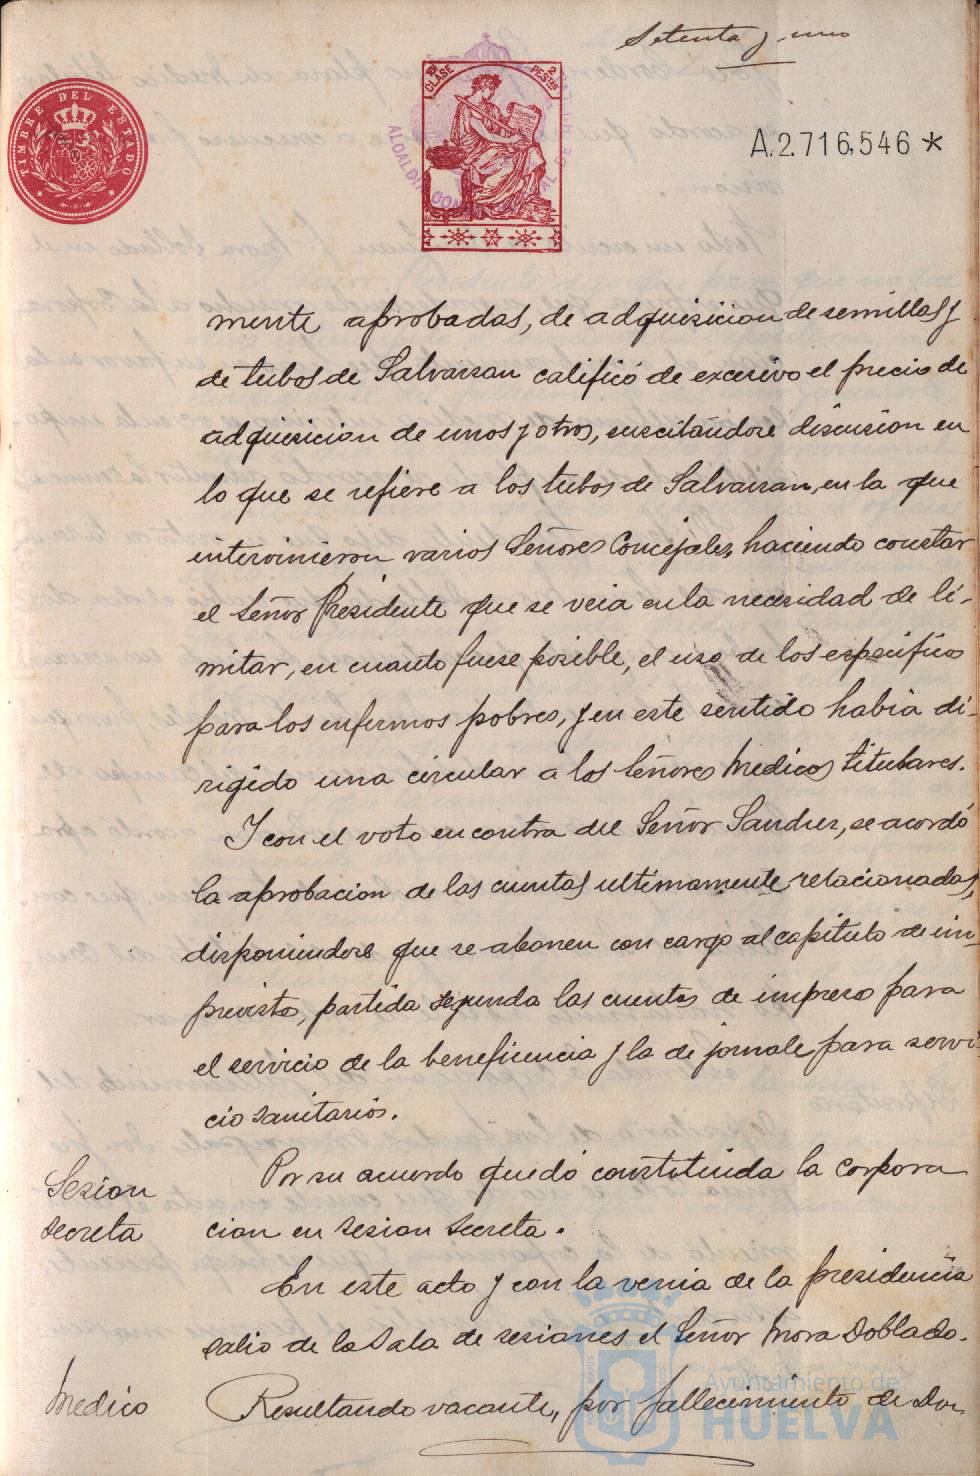 Setenta y uno
TIMBRE DEL ESTADO
10ª CLASE
2 PESTAS
ALCALDIA
A.2.716,546 *
mente aprobadas, de adquisicion de semillas y
de tubos de Salvarsan calificó de excesivo el precio de
adquisicion de unos y otros, suscitandose discusion en
lo que se refiere a los tubos de Salvarsan, en la que
intervinieron varios Señores Concejales, haciendo constar
el Señor Presidente que se veia en la necesidad de li-
mitar, en cuanto fuese posible, el uso de los especificos
para los enfermos pobres, y en este sentido habia di-
rigido una circular a los Señores Medicos titulares.
Y con el voto en contra del Señor Sanchez, se acordó
la aprobacion de las cuentas ultimamente relacionadas,
disponiendose que se abonen con cargo al capitulo de im-
previstos, partida segunda las cuentas de impreso para
el servicio de la beneficencia y la de jornales para servi-
cio sanitarios.
Sesion
secreta
Por su acuerdo quedó constituida la corpora
cion en sesion secreta.
En este acto y con la venia de la presidencia
salio de la Sala de sesiones el Señor Mora Doblado.
Medico
Resultando vacante, por fallecimiento de Don
Ayuntamiento de
HUELVA